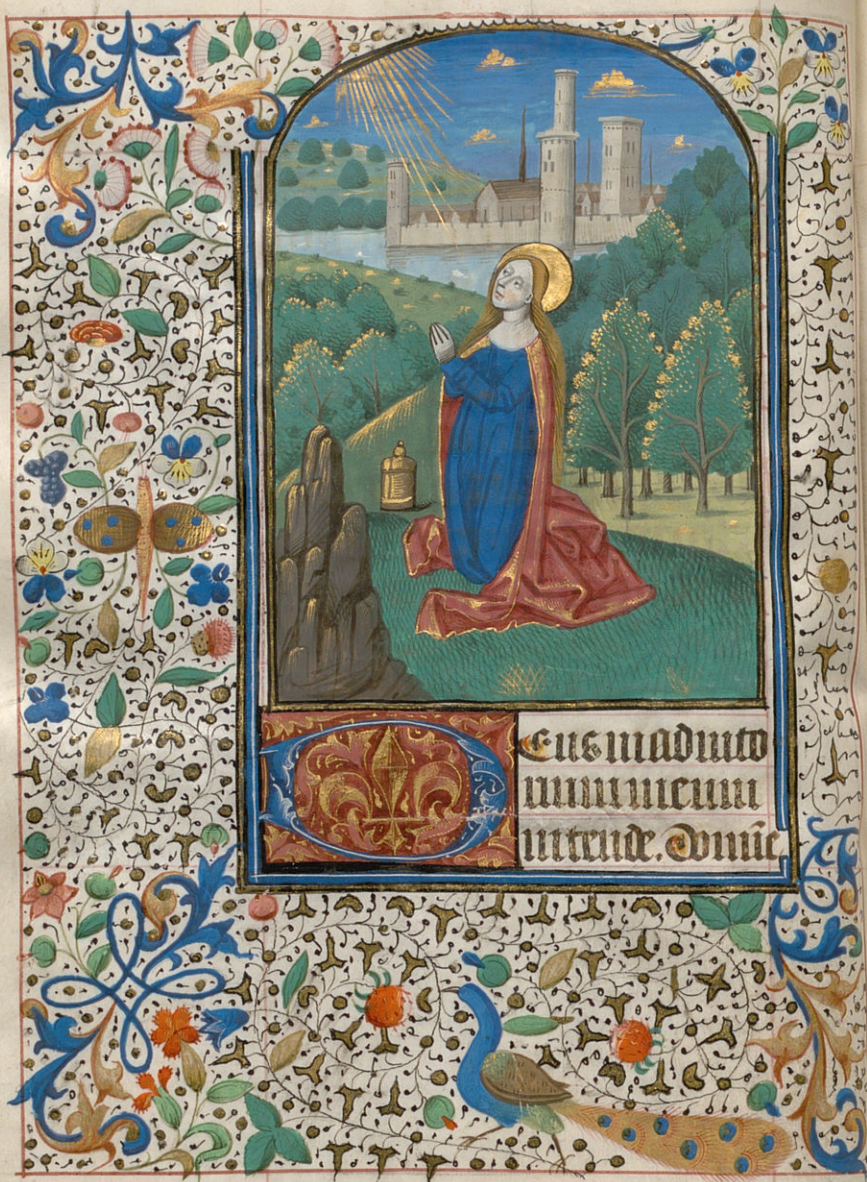 Deus in adiuto
rium meum
intende. Domine